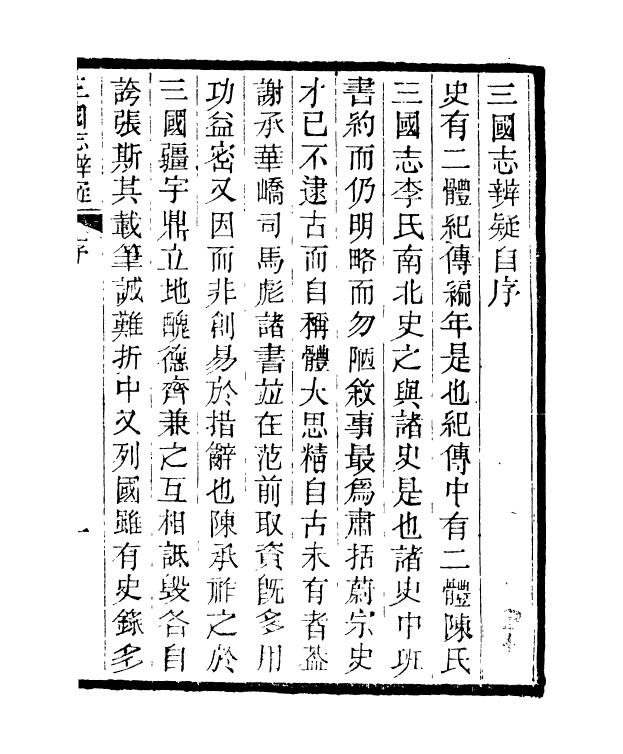 三國志辨疑自序
史有二體紀傳編年是也紀傳中有二體陳氏
三國志李氏南北史之與諸史是也諸史中班
書約而仍明略而勿陋敘事最爲肅括蔚宗史
才已不逮古而自稱體大思精自古未有者葢
謝承華嶠司馬彪諸書竝在范前取資旣多用
功益密又因而非創易於措辭也陳承祚之於
三國疆宇鼎立地醜德齊兼之互相詆毀各自
誇張斯其載筆誠難折中又列國雖有史錄多
三國志辨疑 序 一